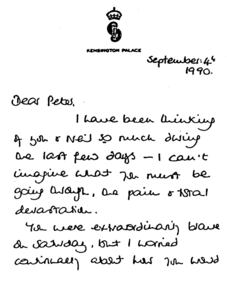 KENSINGTON PALACE
September. 4th
1990.
Dear Peter,
I have been thinking
of you & Neil so much during
the last few days - I can't
imagine what you must be
going through, the pain & total
devastation.
You were extraordinarily brave
on Saturday, but I worried
continually about how you would